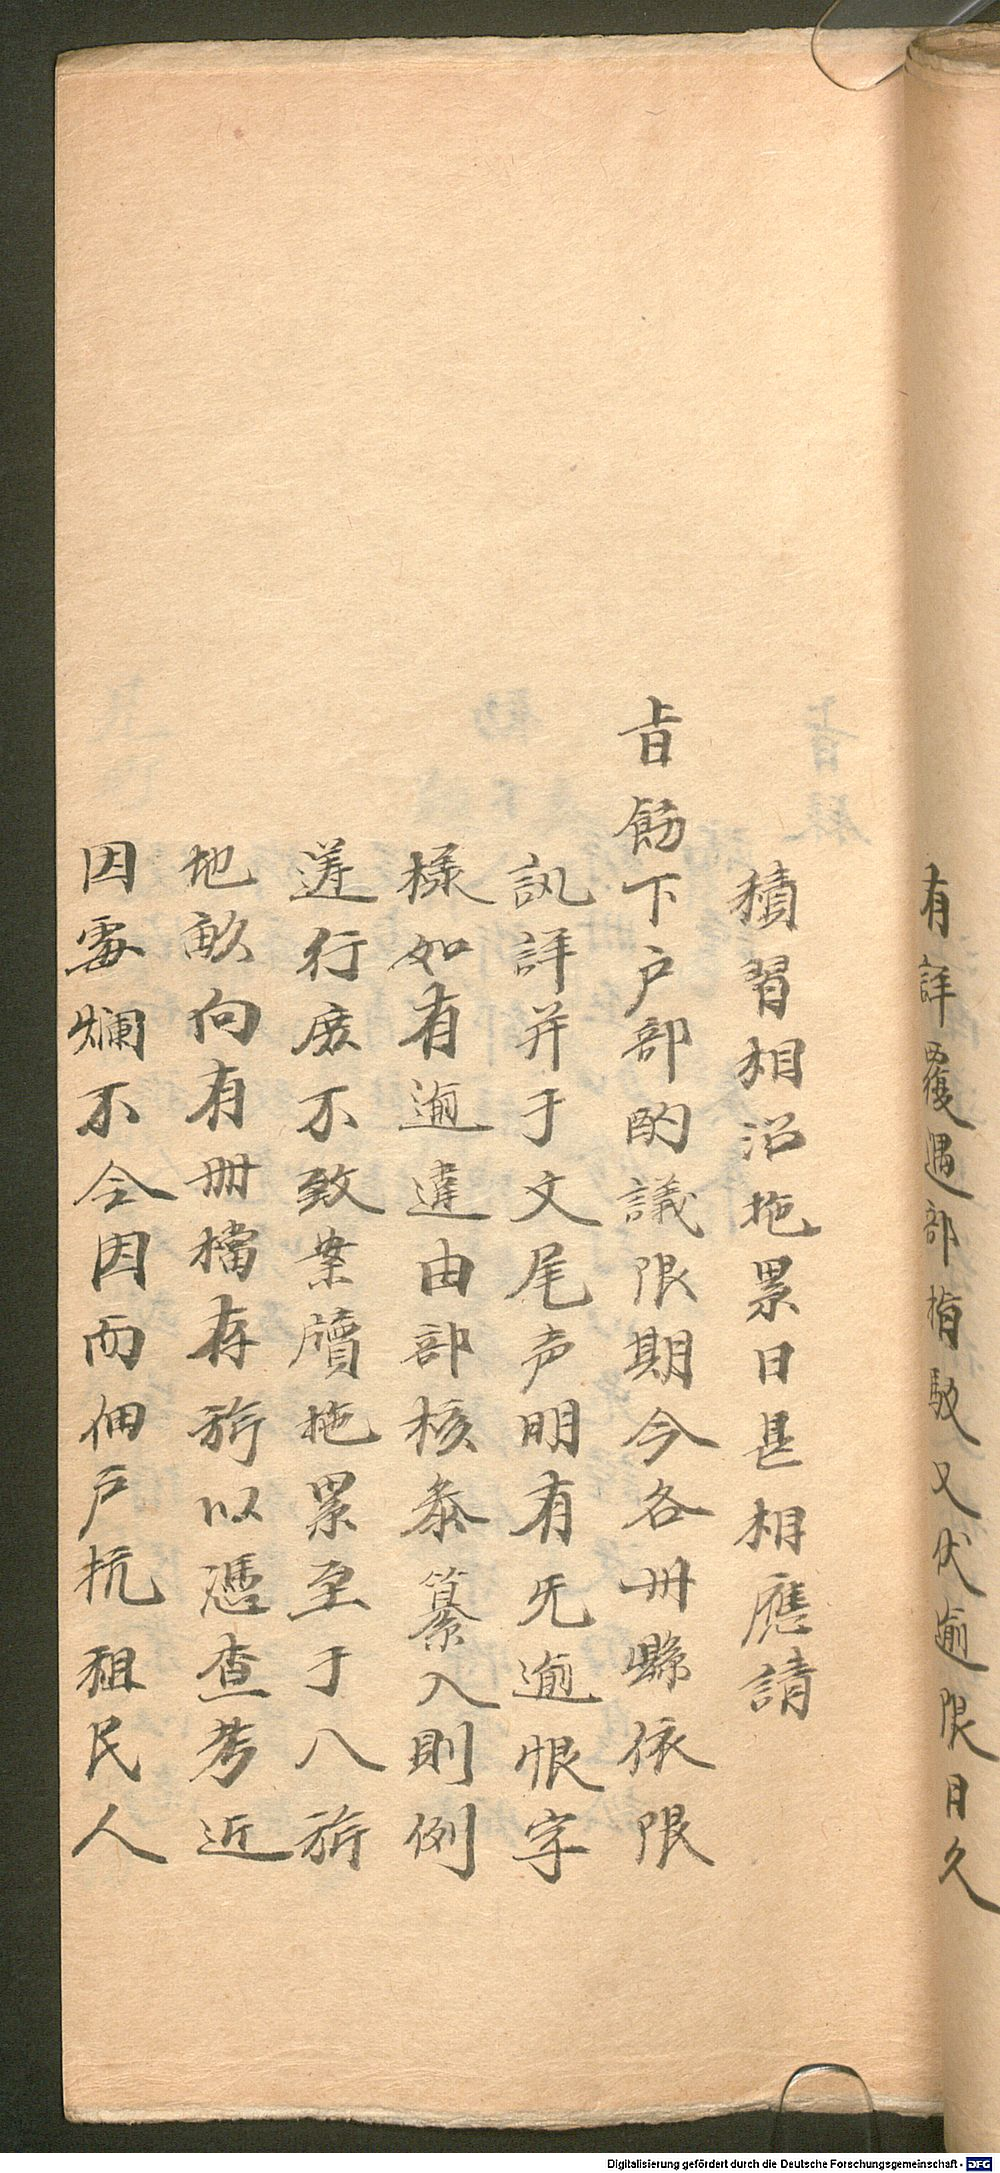 有詳覆遇部指駁又伏逾限日久
積習相沿拖累日甚相應請
旨飭下户部酌議限期令各州縣依限
訊詳并于文尾声明有无逾恨字
樣如有逾違由部核叅纂入則例
遵行庶不致案牘拖累至于八旂
地畝向有冊檔存旂以憑查考近
因霉爛不全因而佃户抗租民人
Digitalisierung gefördert durch die Deutsche Forschungsgemeinschaft - DFG